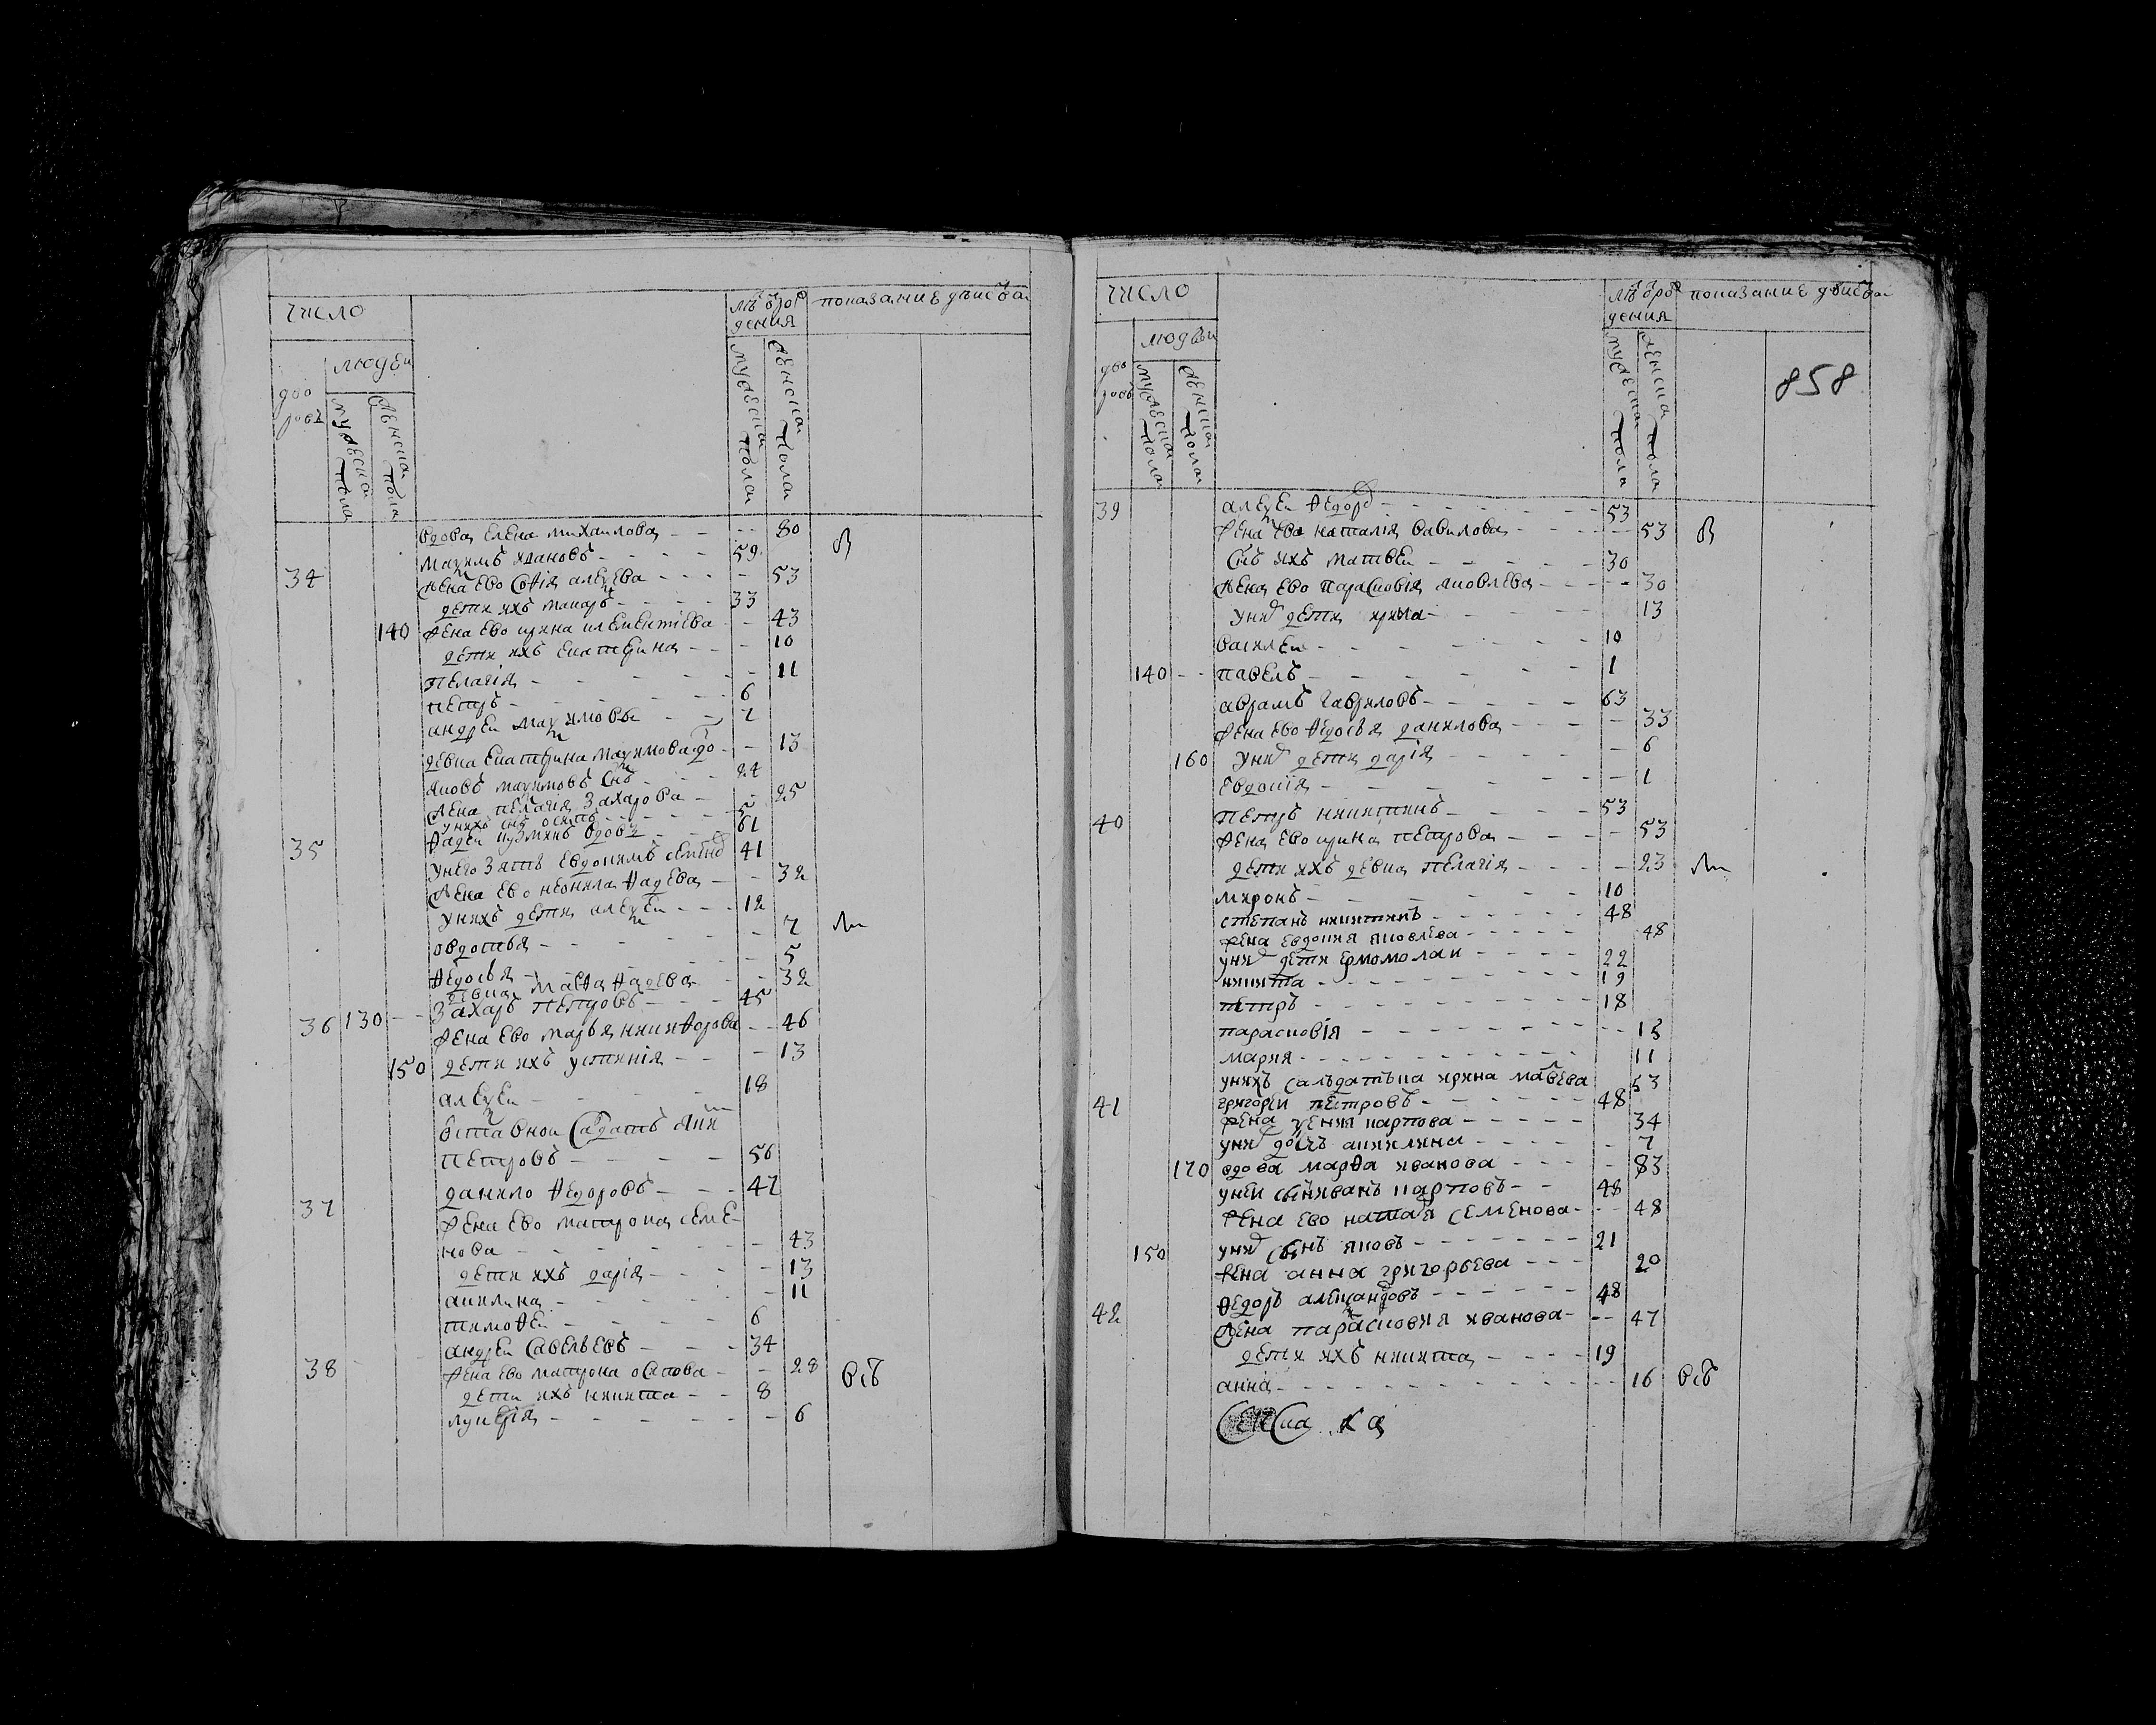 число
людеи
дво
ровъ
мужеска
пола
женска
пола
лѣ ѿ рож
дения
мужеска
пола
женска
пола
показание дѣиства
вдова елена михаилова - - - - 80
маѯимъ ивановъ - - - - 59 в
34 жена ево софія алеѯева - - - - 53
дети ихъ макаръ - - - - 33
140 жена ево ирина клементіева - - 43
дети ихъ екатерина - - - 10
пелагія - - - - - 11
петръ - - - - - 6
андреи маѯимовъ - - 7
девка екатерина маѯимова - - 13
яковъ маѯимовъ снъ - - 24
жена пелагия захарова - - 25
у нихъ снъ осипъ - - - - 5
35 фадеи кузминъ вдовъ - - - 61
у него зять евдокимъ семенов 41
жена ево неонила фадеева - - 32
у нихъ дети алеѯеи - - - 12
овдотья - - - - - 7 ли
федосья - - - - - 5
девка марфа фадеева - 32
36 130 - - захаръ петровъ - - - 45
жена ево марья никифорова - - 46
150 дети ихъ устинія - - - 13
алеѯеи - - - - - 18
ѿставнои салдатъ яки
петровъ - - - - 56
37 данило федоровъ - - - 47
жена ево матрона семе-
нова - - - - - - 43
дети ихъ дарія - - - - 13
акилина - - - - - 11
тимофеи - - - - - 6
андреи савельевъ - - - 34
38 жена ево матрона осипова - - 28
дети ихъ никита - - 8 всѣ
лукерія - - - - - - 6
число
людеи
дво
ровъ
мужеска
пола
женска
пола
лѣ ѿ рож
дения
мужеска
пола
женска
пола
показание дѣиства
858
39 алеѯеи федоров - - - - - - - 53
жена ево наталія вавилова - - - - - 53 в
снъ ихъ матвеи - - - - - 30
жена ево парасковія яковлева - - - - 30
у них дети ирина - - - - - 13
василеи - - - - - - - 10
140 - - павелъ - - - - - - 1
аврамъ гавриловъ - - - - - 63
жена ево федосья данилова - - - - 33
160 у них дети дарія - - - - - 6
евдокія - - - - - - - 1
40 петръ никитинъ - - - - - 53
жена ево ирина петрова - - - - - 53
дети ихъ девка пелагія - - - - - 23 ли
миронъ - - - - - - - 10
степанъ никитинъ - - - - - - 48
жена евдокия яковлева - - - - - 48
у них дети ермомолаи - - - - 22
никита - - - - - - - - - 19
петръ - - - - - - - - - 18
парасковія - - - - - - - - - 13
мария - - - - - - - - - 11
у нихъ салъдатъка ирина матвева 53
41 григоріи петровъ - - - - - - - 48
жена ѯения карпова - - - - - 34
у них дочь акилина - - - - - 7
170 вдова марфа иванова - - - - 83
у неи сынъ иванъ карповъ - - 48
жена ево наталя семенова - - - 48
150 у них сынъ яковъ - - - - - - - 21
жена анна григорьева - - - 20
42 федоръ алеѯандровъ - - - - - - 48
жена парасковия иванова - - - 47
дети ихъ никита - - - - 19
анна - - - - - - - - - - - - 16 всѣ